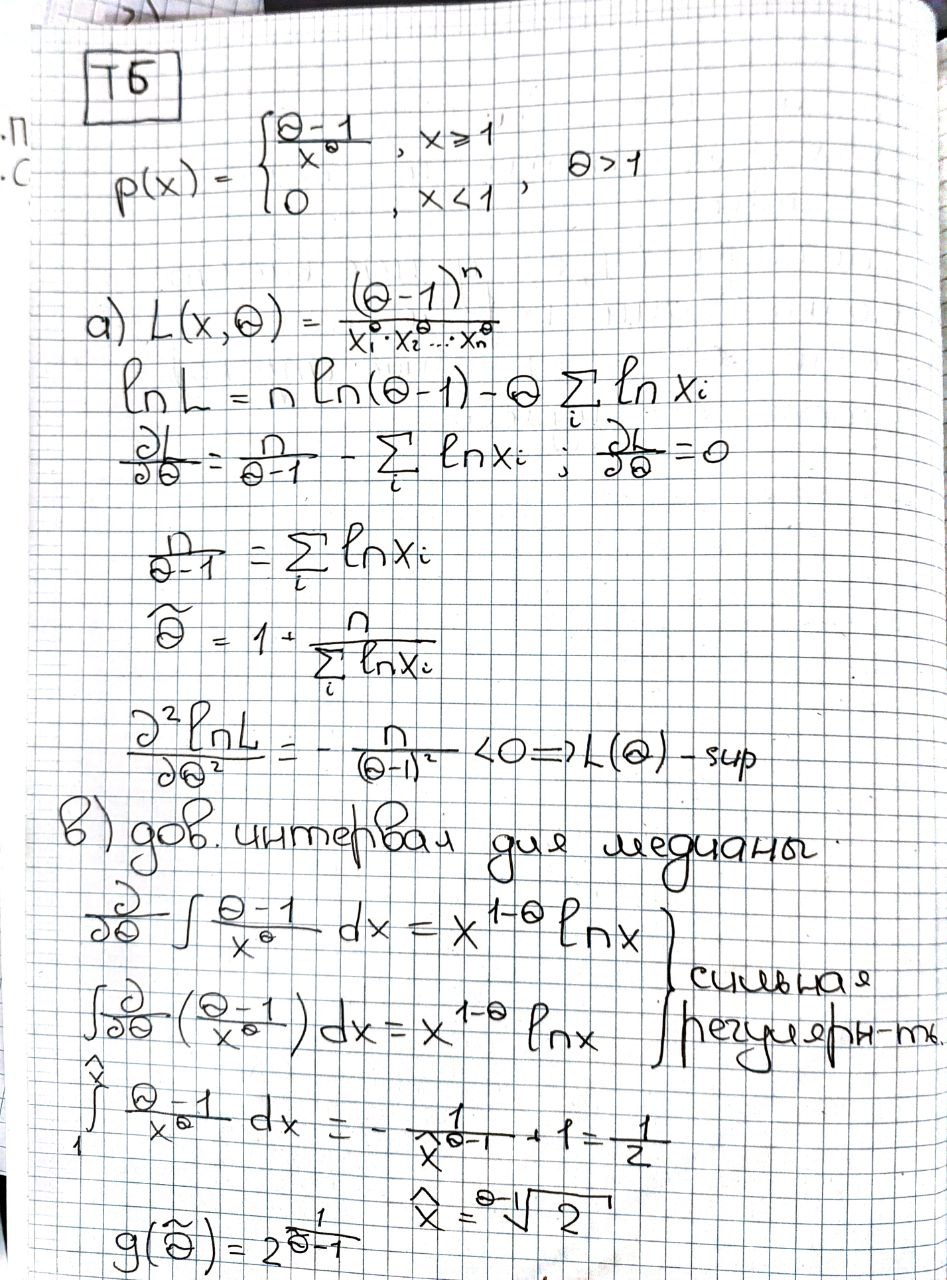 Т5
.П
.С
p(x) = { (θ-1)/x^θ , x ≥ 1
0 , x < 1 , θ > 1
а) L(x,θ) = (θ-1)^n / (x₁^θ · x₂^θ ... · xₙ^θ)
ln L = n ln(θ-1) - θ Σ_i ln xᵢ
∂L/∂θ = n/(θ-1) - Σ_i ln xᵢ ; ∂L/∂θ = 0
n/(θ-1) = Σ_i ln xᵢ
θ̃ = 1 + n/(Σ_i ln xᵢ)
∂² ln L/∂θ² = - n/(θ-1)² < 0 => L(θ) - sup
в) дов. интервал для медианы
∂/∂θ ∫ (θ-1)/x^θ dx = x^(1-θ) ln x } сильная
∫ ∂/∂θ ((θ-1)/x^θ) dx = x^(1-θ) ln x } регулярн-ть.
∫_1^x̂ (θ-1)/x^θ dx = - 1/x̂^(θ-1) + 1 = 1/2
x̂ = ^(θ-1)√2
g(θ̃) = 2^(1/(θ̃-1))